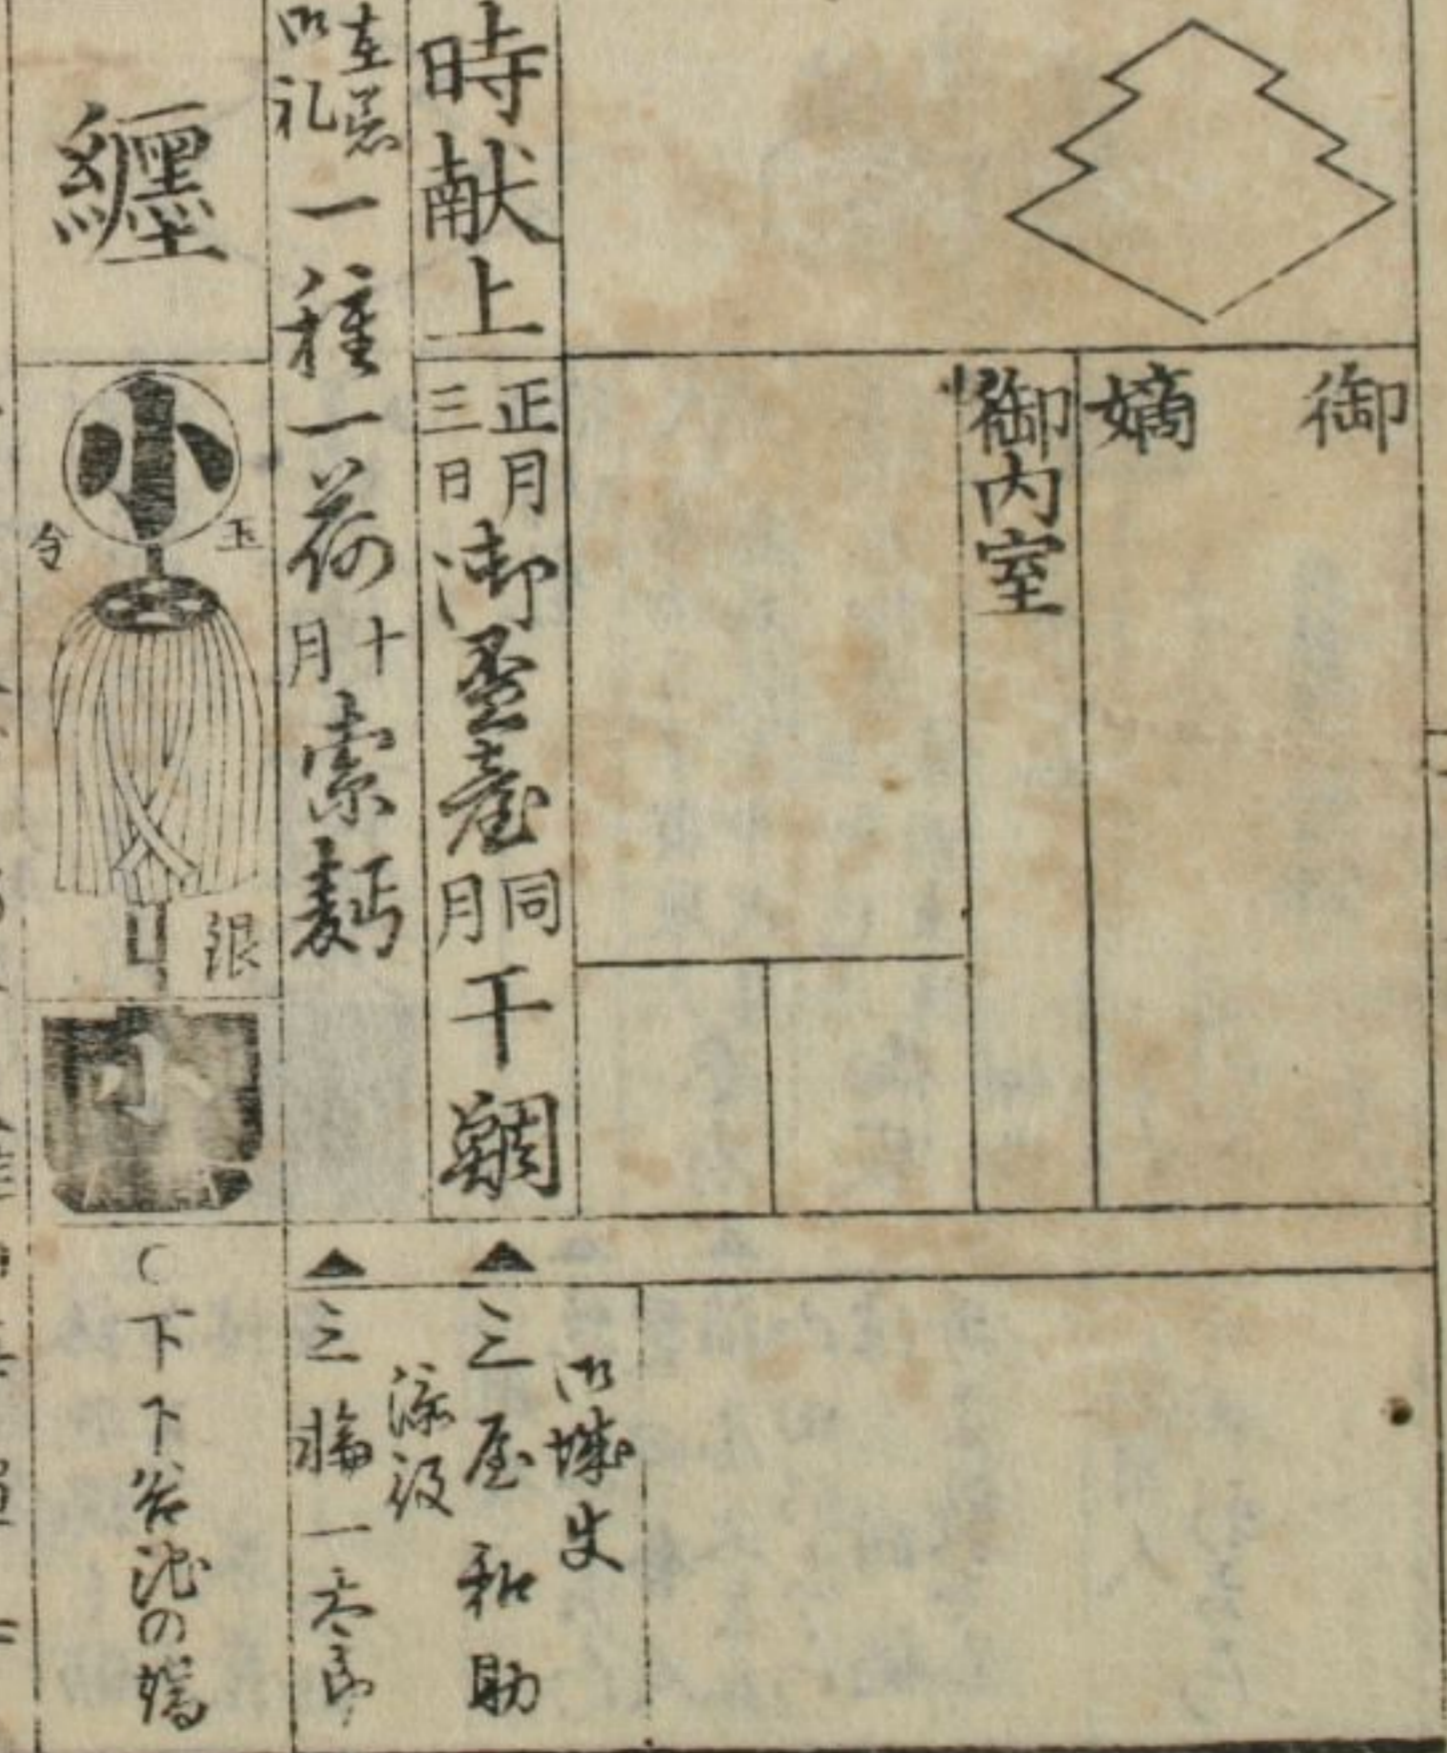 御
嫡
御内室
時献上
正月
三日
御盃臺
同月
干鯛
在着
御礼
一種一荷
十月
索麪
纏
小
玉
令
銀
小
御城使
三屋和助
添役
三輪一太郎
下下谷池の端